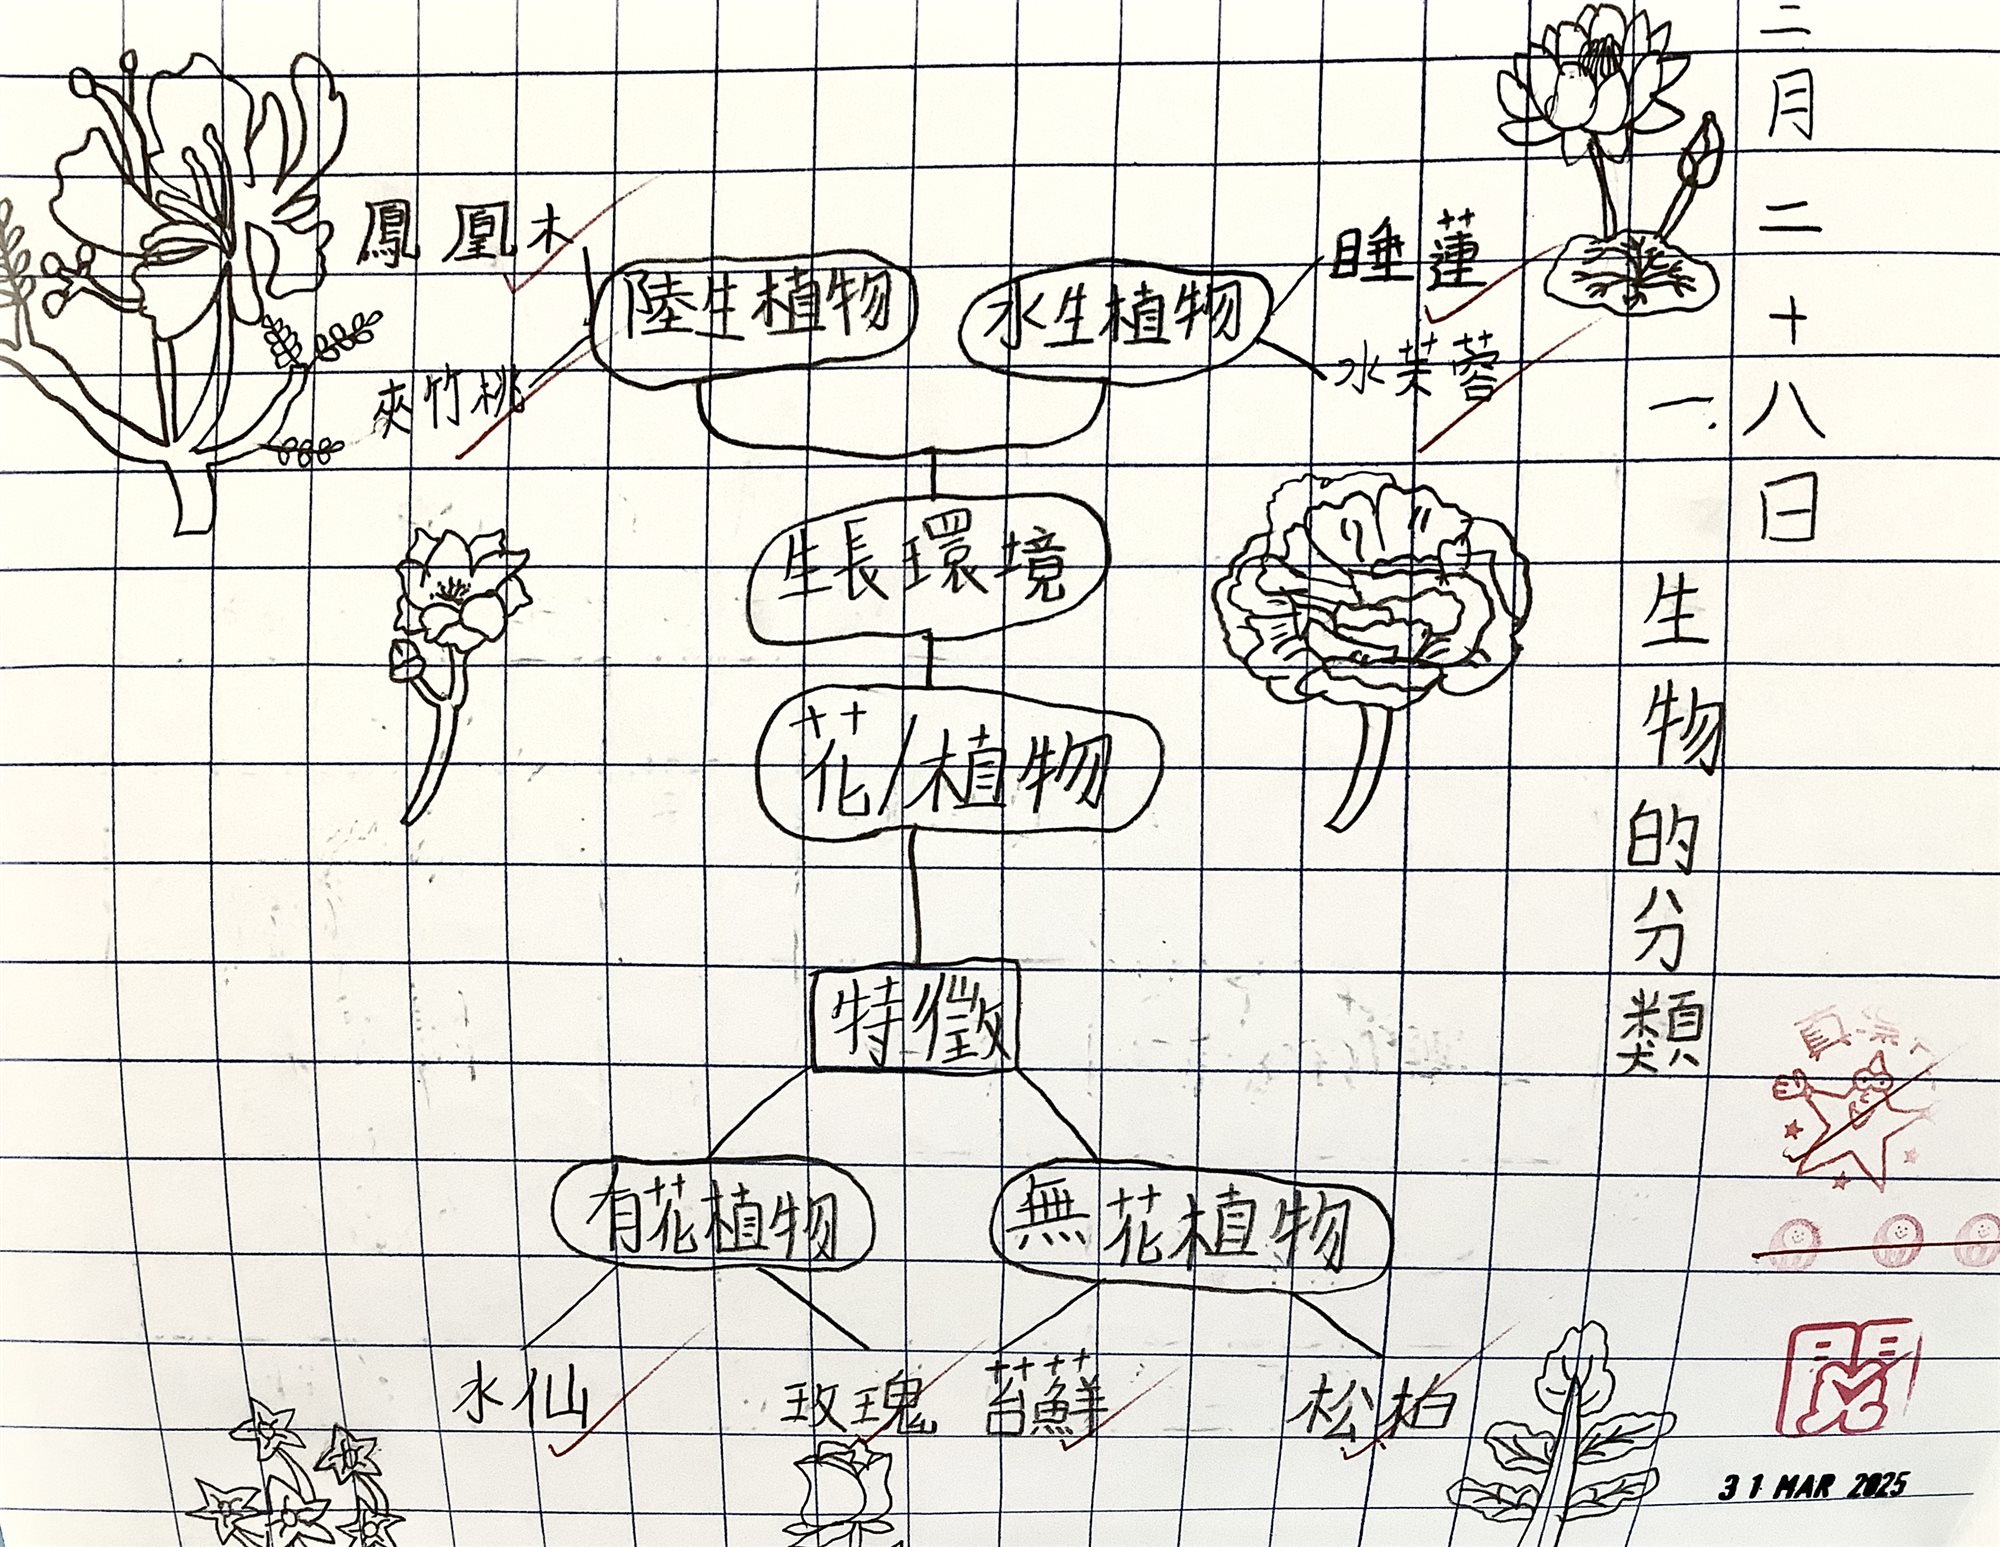 三月二十八日
一.生物的分類
鳳凰木
夾竹桃
陸生植物
水生植物
睡蓮
水芙蓉
生長環境
花/植物
特徵
有花植物
無花植物
水仙
玫瑰
苔鮮
松柏
閱
31 MAR 2025